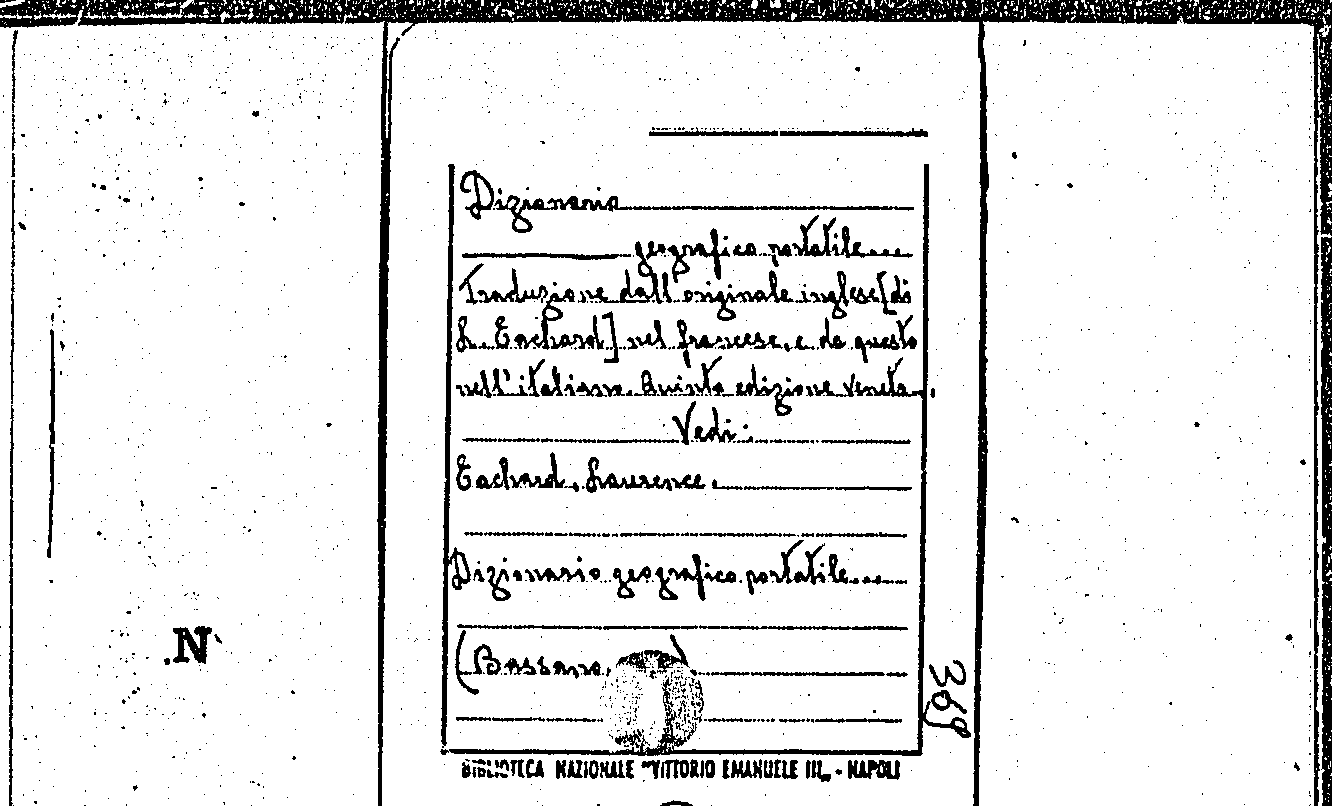 Dizionario
geografico portatile...
Traduzione dall'originale inglese [di
L. Eachard] nel francese, e da questo
nell'italiano. Quinta edizione veneta...
Vedi:
Eachard, Laurence.
Dizionario geografico portatile...
(Bassano, )
369
BIBLIOTECA NAZIONALE "VITTORIO EMANUELE III„ - NAPOLI
.N